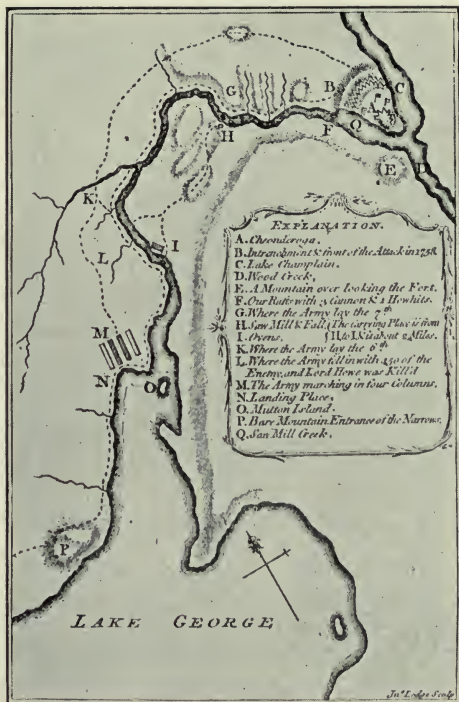 G
B
C
A
H
F
Q
E
D
K
I
L
EXPLANATION.
A. Cheonderoga.
B. Intrenchment & front of the Attack in 1758.
C. Lake Champlain.
D. Wood Creek,
E. A Mountain over looking the Fort.
F. Our Rafts with 3 Cannon & 1 Howhits.
G. Where the Army lay the 7th
H. Saw Mill & Falls, The Carrying Place is from
I. Ovens. H to I. N is about 2 Miles.
K. Where the Army lay the 6th
L. Where the Army fell in with 450 of the
Enemy, and Lord Howe was Kill'd
M. The Army marching in four Columns,
N. Landing Place,
O. Mutton Island.
P. Bare Mountain. Entrance of the Narrows,
Q. Saw Mill Creek,
M
N
O
P
LAKE GEORGE
Jno. Lodge Sculp